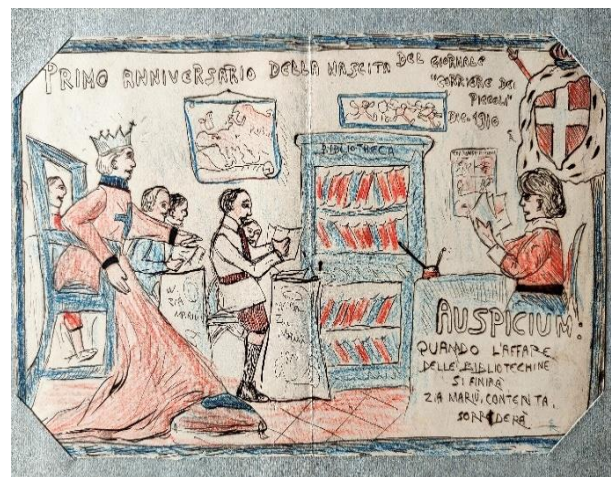 PRIMO ANNIVERSARIO DELLA NASCITA DEL GIORNALE
"CORRIERE DEI
PICCOLI"
DIC. 1910
BIBLIOTHECA
W.
ZIA
AUSPICIUM:
QUANDO L'AFFARE
DELLE BIBLIOTECHINE
SI FINIRÀ
ZIA MARIÙ, CONTENTA,
SORRIDERÀ